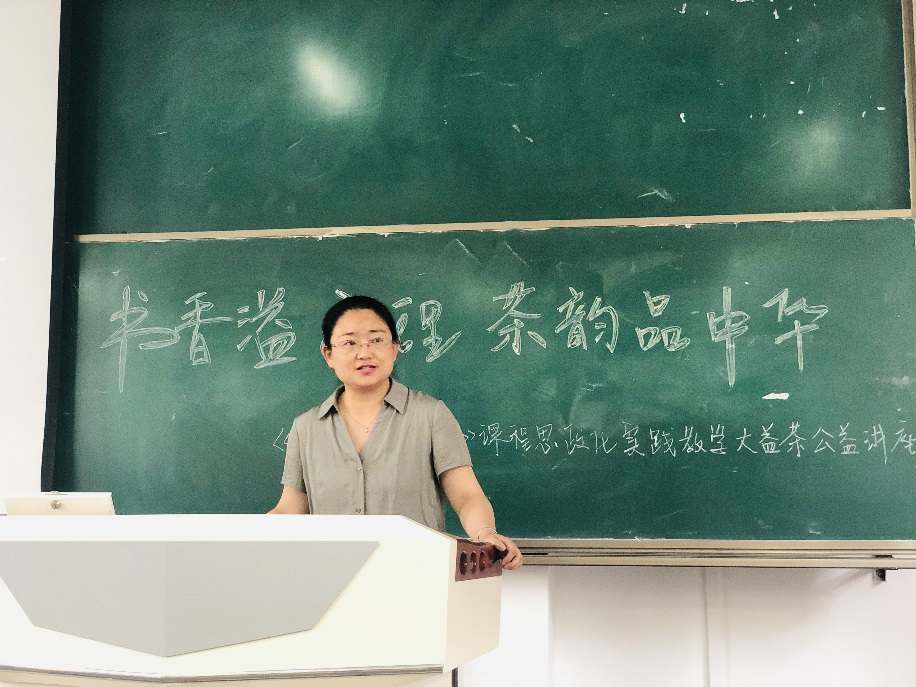 书香溢 理 茶韵品中华
课程思政化实践教学大益茶公益讲座